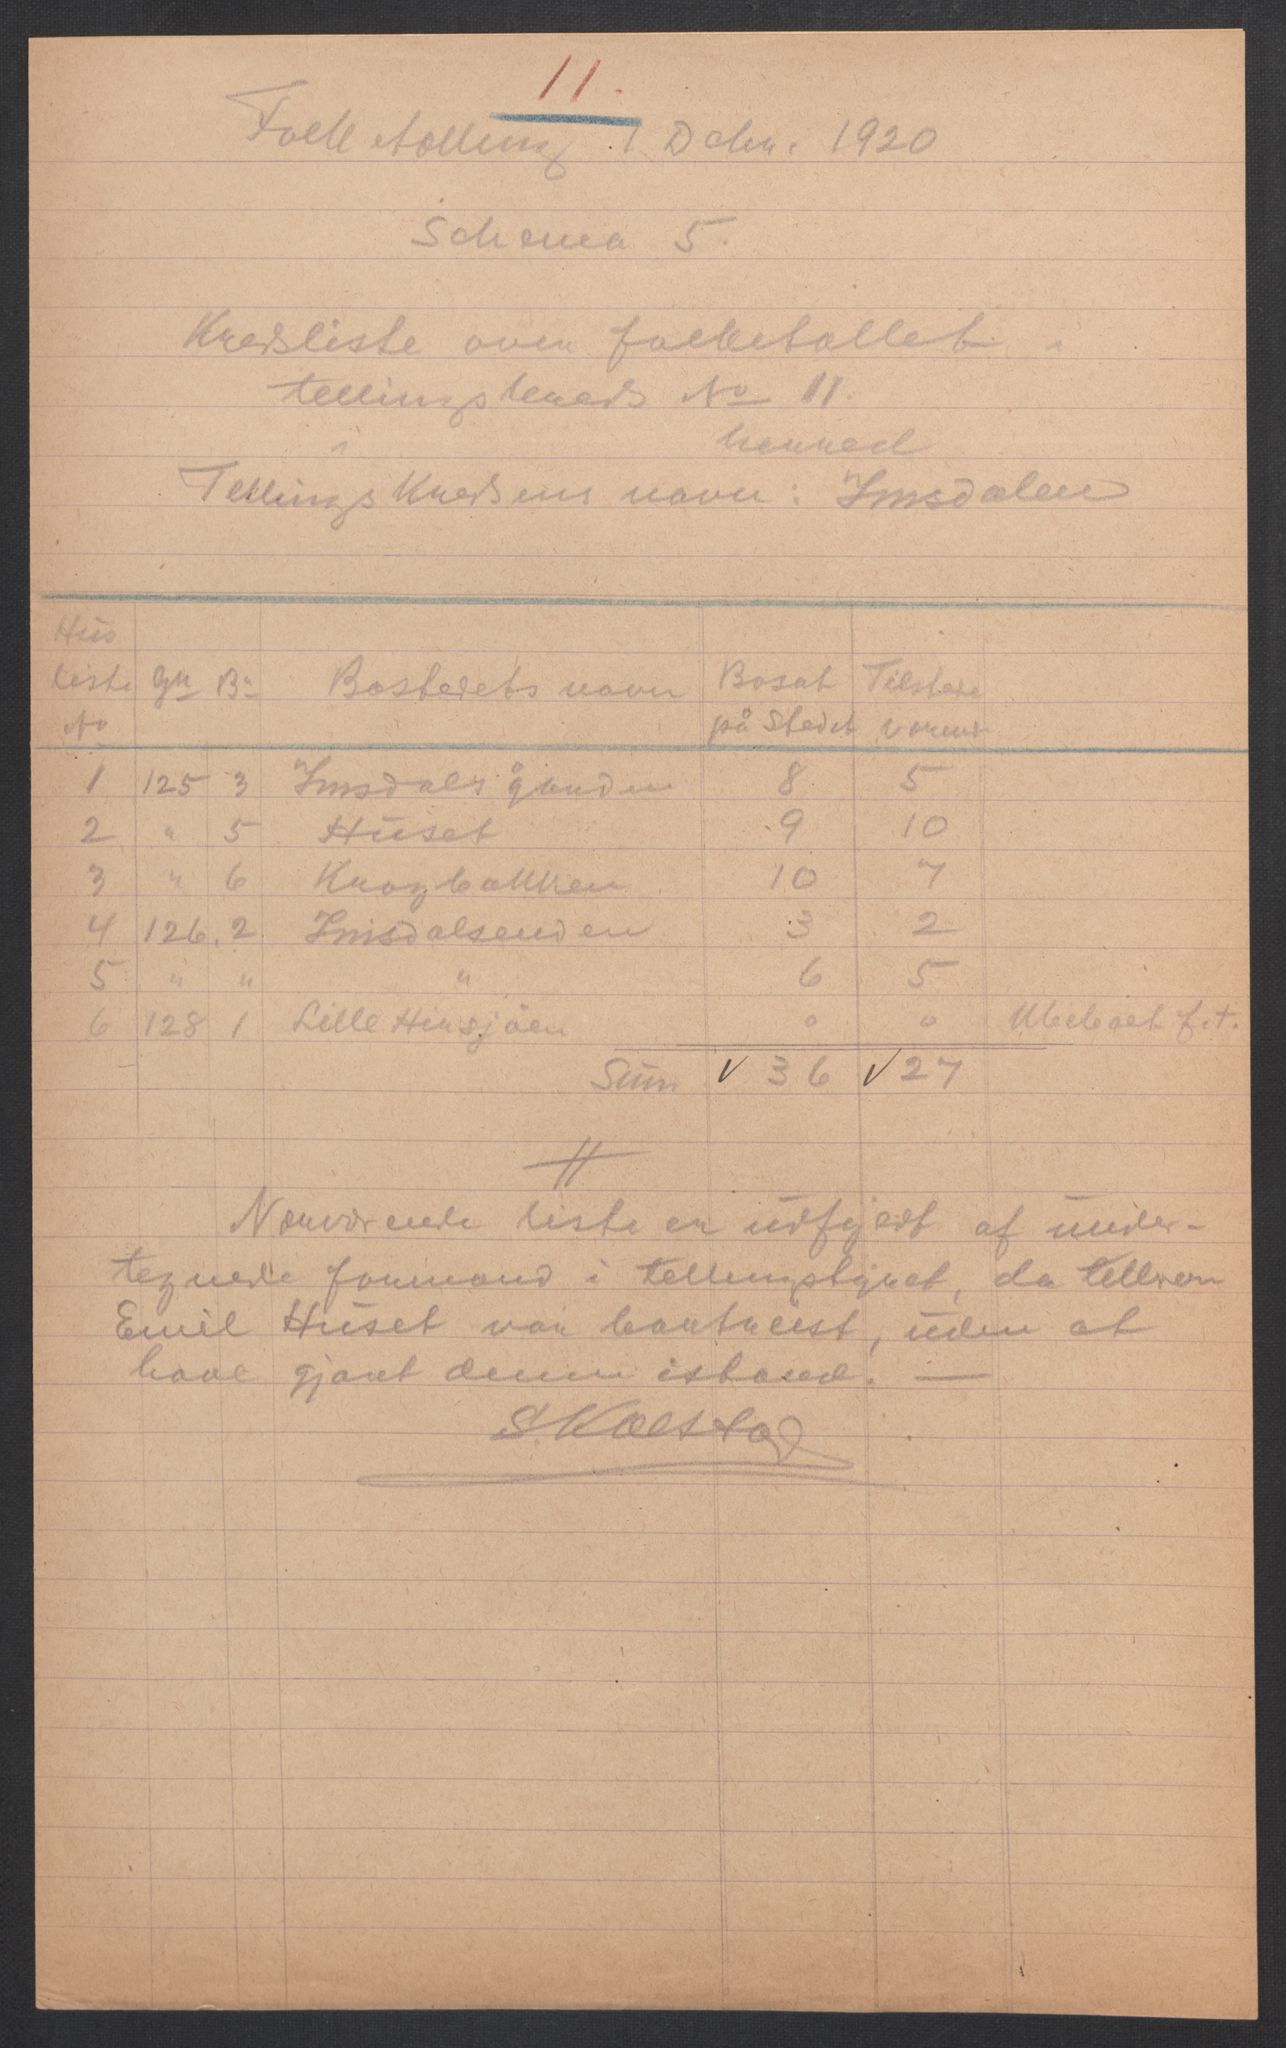 11.
Folketelling 1 Dcbr. 1920
Schema 5.
Kredsliste over folketallet i
tellingskreds No 11.
i herred
Tellingskredsens navn: Imsdalen
Hus
liste Gn Bn Bostedets navn Bosat Tilstede
No på Stedet værende
1 125 3 Imsdalsgården 8 5
2 " 5 Huset 9 10
3 " 6 Krogbakken 10 7
4 126. 2 Imsdalsenden 3 2
5 " " " 6 5
6 128 1 Lille Hirsjøen 0 0 Ubeboet f.t.
Sum 36 27
Nærværende liste er udfyldt af under-
tegnede formand i tellingstyret, da telleren
Emil Huset var bortreist, uden at
have gjort denne istand. —
S. Kolstad